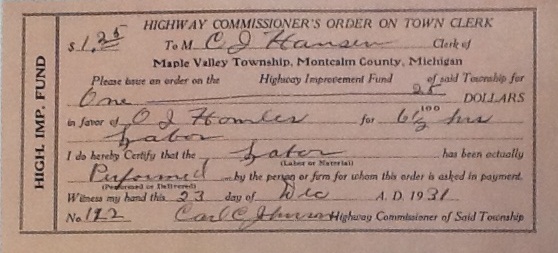 HIGH. IMP. FUND
HIGHWAY COMMISSIONER'S ORDER ON TOWN CLERK
$1.25 To M C J Hansen Clerk of
Maple Valley Township, Montcalm County, Michigan
Please issue an order on the Highway Improvement Fund of said Township for
One 25/100 DOLLARS
in favor of O J for 6 1/2 hrs
Labor
I do hereby Certify that the Labor has been actually
(Labor or Material)
Performed by the person or firm for whom this order is asked in payment.
(Performed or Delivered)
Witness my hand this 23 day of Dec A. D. 1931
No. 112 Carl C Johnson Highway Commissioner of Said Township